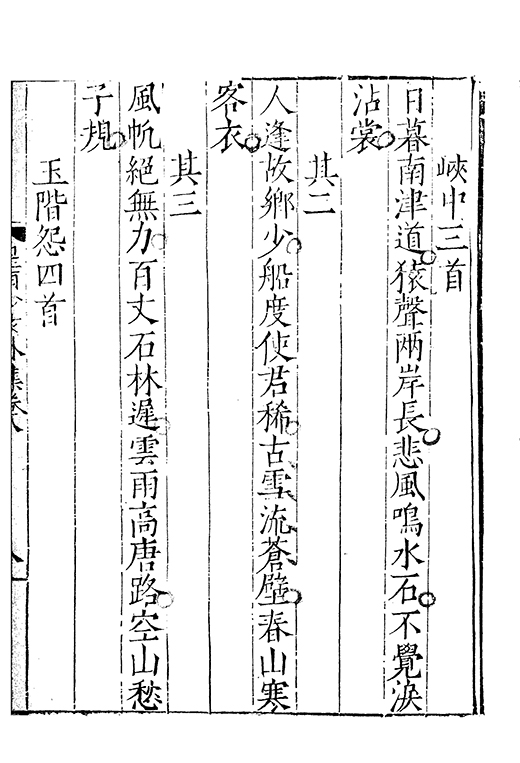 峽中三首
日暮南津道猿聲兩岸長悲風鳴水石不覺淚
沾裳
其二
人逢故鄉少船度使君稀古雪流蒼壁春山寒
客衣
其三
風帆絕無力百丈石林遲雲雨高唐路空山愁
子規
玉階怨四首